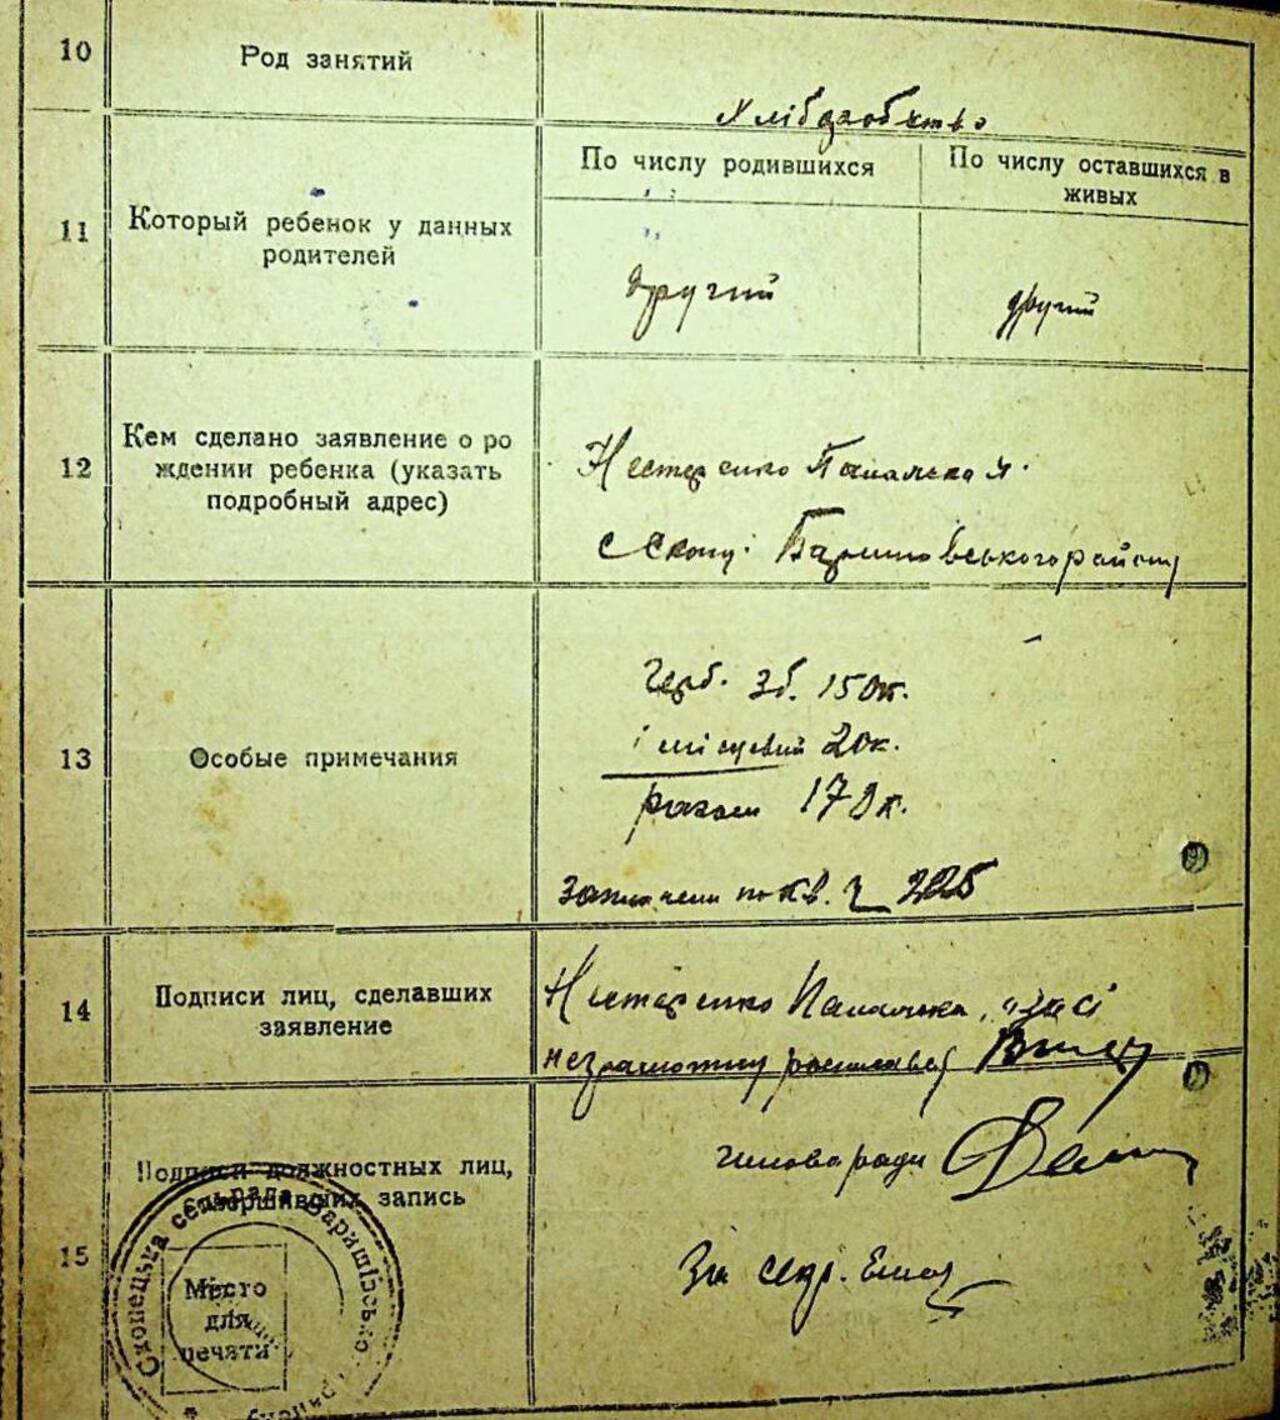 10
Род занятий
Хліборобство
11
Который ребенок у данных
родителей
По числу родившихся
По числу оставшихся в
живых
другий
другий
12
Кем сделано заявление о ро
ждении ребенка (указать
подробный адрес)
Нестеренко Палажка
с Скопці Баришовського району
13
Особые примечания
Герб. зб. 150к.
і місцевий 20к.
разом 170к.
по кв. 2225
14
Подписи лиц, сделавших
заявление
Нестеренко Палажка,
неграмотну
15
Подписи должностных лиц,
совершивших запись
Голова ради
За секр.
Место
для
печати
Скопецька сельрада Баришівсько